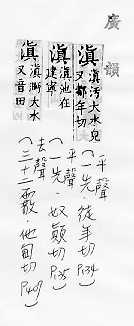 廣韻
滇 滇汅大水皃又都年切
(平聲 一先·徒年切 P134)
滇 滇池在建寧
(平聲 一先·都年切 P135)
滇 滇㴐大水又音田
(去聲 三十二霰·他甸切 P409)